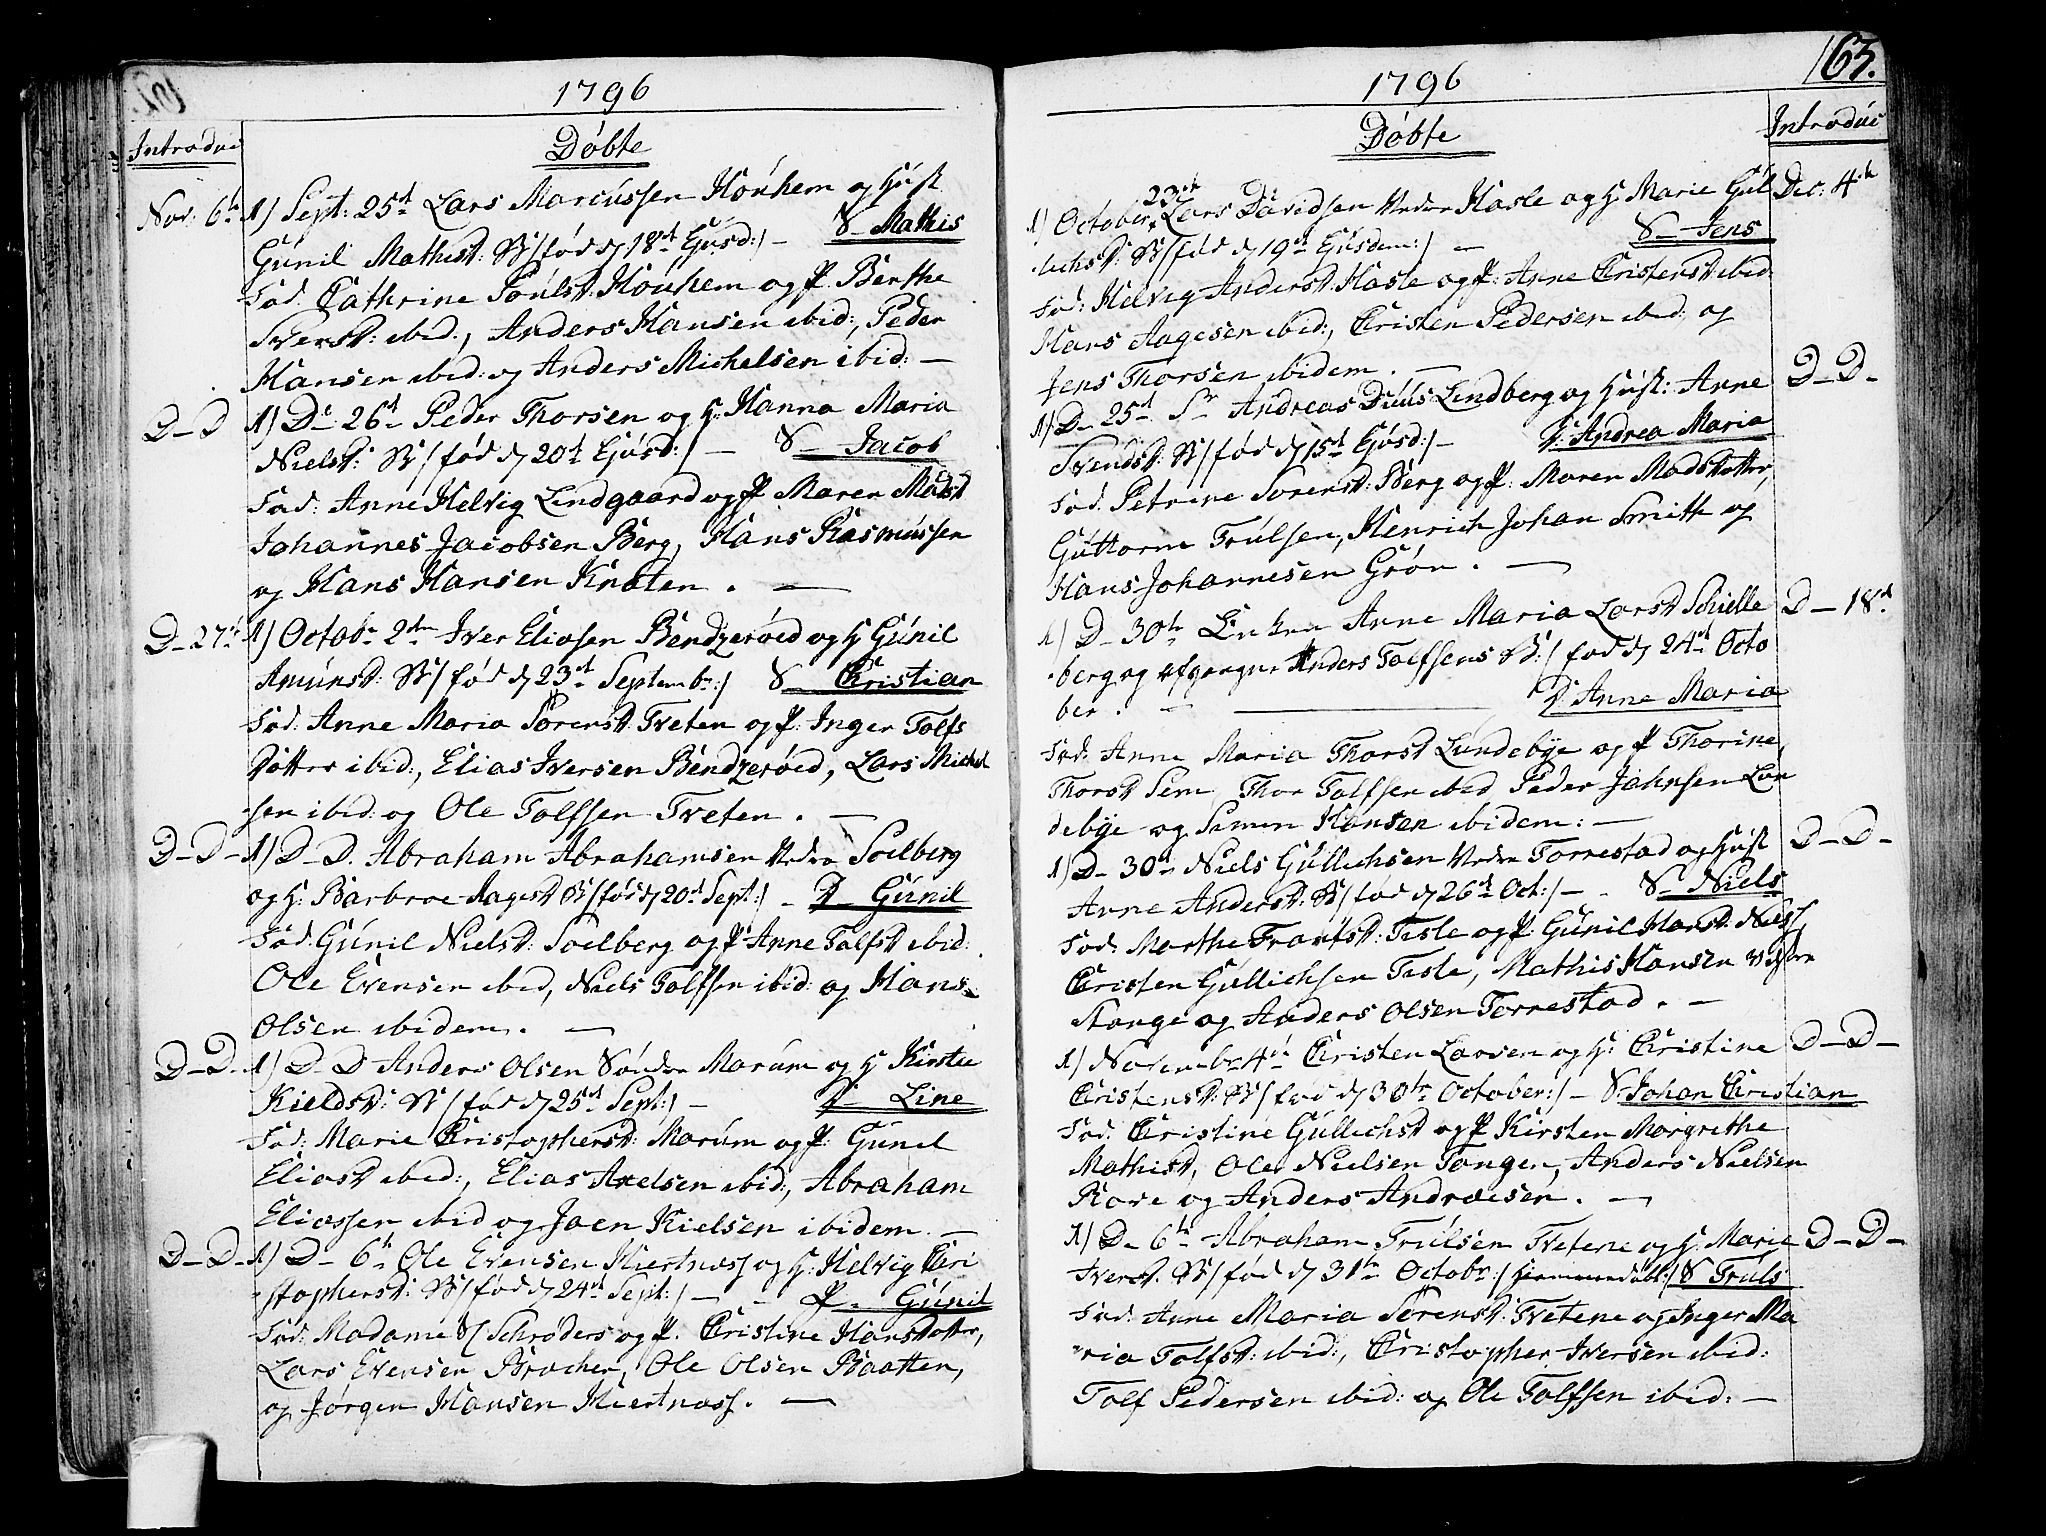 1796
Introduc
Döbte
Nov: 6th 1) Sept: 25de Lars Marcussen Houhem og Hust
Gunil Mathisd: B:/ fød d 18de Ejusd:/ – S– Mathis
Fad: Cathrine Poulsd: Houhem og P. Berthe
Iversd: ibid:, Anders Hansen ibid:, Peder
Hansen ibid: og Anders Michelsen ibid: –
D–D 1) D– 26de Peder Thorsen og H: Hanna Maria
Nielsd: B:/ fød d 20de Ejusd:/ – S– Jacob
Fad: Anne Helvig Lindgaard og P. Maren Madsd
Johannes Jacobsen Berg, Hans Rasmussen
og Hans Hansen Knaten. –
D–27de 1) Octobr 2den Iver Eliasen Bendzerøed og H Gunil
Amunsd: B:/ fød d 23de Septembr:/ S– Christian
Fad: Anne Maria Sørensd Tveten og P: Inger Tolfs
Dotter ibid:, Elias Iversen Bendzerøed, Lars Michel
sen ibid: og Ole Tolfsen Tveten. –
D–D– 1) D–D. Abraham Abrahamsen Nedre Soelberg
og H: Barbroe Aagesd B:/ fød d 20de Sept:/ – D– Gunil
Fad: Gunil Nielsd: Soelberg og P. Anne Tolfsd ibid:
Ole Evensen ibid, Niels Tolfsen ibid: og Hans
Olsen ibidem. –
D–D. 1) D–D Anders Olsen Søndre Marum og H Kirstie
Kieldsd: B:/ fød d 25de Sept:/ – D– Line
Fad: Marie Christophersd: Marum og P: Gunil
Eliasd ibid:, Elias Axelsen ibid:, Abraham
Eliassen ibid og Joen Kielsen ibidem. –
D–D– 1) D– 6te Ole Evensen Hiertnæss og H: Helvig Chri
stophersd: B:/ fød d 24de Sept:/ – – D– Gunil
Fad: Madame Schrøders og P. Christine Hansdotter,
Lars Evensen Bracher, Ole Olsen Baatten,
og Jørgen Hansen Hiertnæss. –
1796
163.
Introduc
Döbte
1) October 23de Lars Davidsen Nedre Hasle og H Marie Gul Dec: 4de
lichsd: B:/ fød d 19de Ejusdem:/ – S– Jens
Fad: Helvig Andersd: Hasle og P: Anne Christensd ibid:
Hans Aagesen ibid:, Christen Pedersen ibid: og
Jens Thorsen ibidem. –
1) D– 25de Sr Andreas Duus Lindberg og Hust: Anne D–D–
Svendsd: B:/ fød d 15de Ejusd:/ – D: Andrea Maria
Fad: Petrine Sorensd: Berg og P: Maren Madsdotter,
Guttorm Trulsen, Henrich Johan Smith og
Hans Johannesen Grøn. –
1) D– 30te Enken Anne Maria Larsd Schielle D–18de
berg og afgangne Anders Tolfsens B:/ fød d 24de Octo
ber. – D: Anne Maria
Fad: Anne Maria Thorsd Lundebye og P Thorine
Thorsd Sem, Thor Tolfsen ibid, Peder Johnsen Lun
debye og Simen Hansen ibidem: –
1) D– 30te Niels Gullichsen Nedre Torrestad og Hust D–D–
Anne Andersd: B:/ fød d 26de Oct:/ – S– Niels
Fad: Marthe Frantsd: Tisle og P: Gunil Hansd: Næss,
Christen Gullichsen Tisle, Mathis Hansen
Stange og Anders Olsen Torrestad. –
1) Novembr 4de Christen Larsen og H: Christine D–D–
Christensd: B:/ fød d 30te October:/ – S: Johan Christian
Fad: Christine Gullichsd og P Kirsten Margrethe
Mathisd, Ole Nielsen Tangen, Anders Nielsen
Rove og Anders Andræsen. –
1) D– 6te Abraham Trulsen Tvetene og H: Marie D–D–
Iversd. B:/ fød d 31te Octobr:/ hiemmedøbt:/ S Truls
Fad: Anne Maria Sørensd: Tvetene og Inger Ma
ria Tolfsd: ibid:, Christopher Iversen ibid:
Tolf Pedersen ibid: og Ole Tolfsen ibid: –